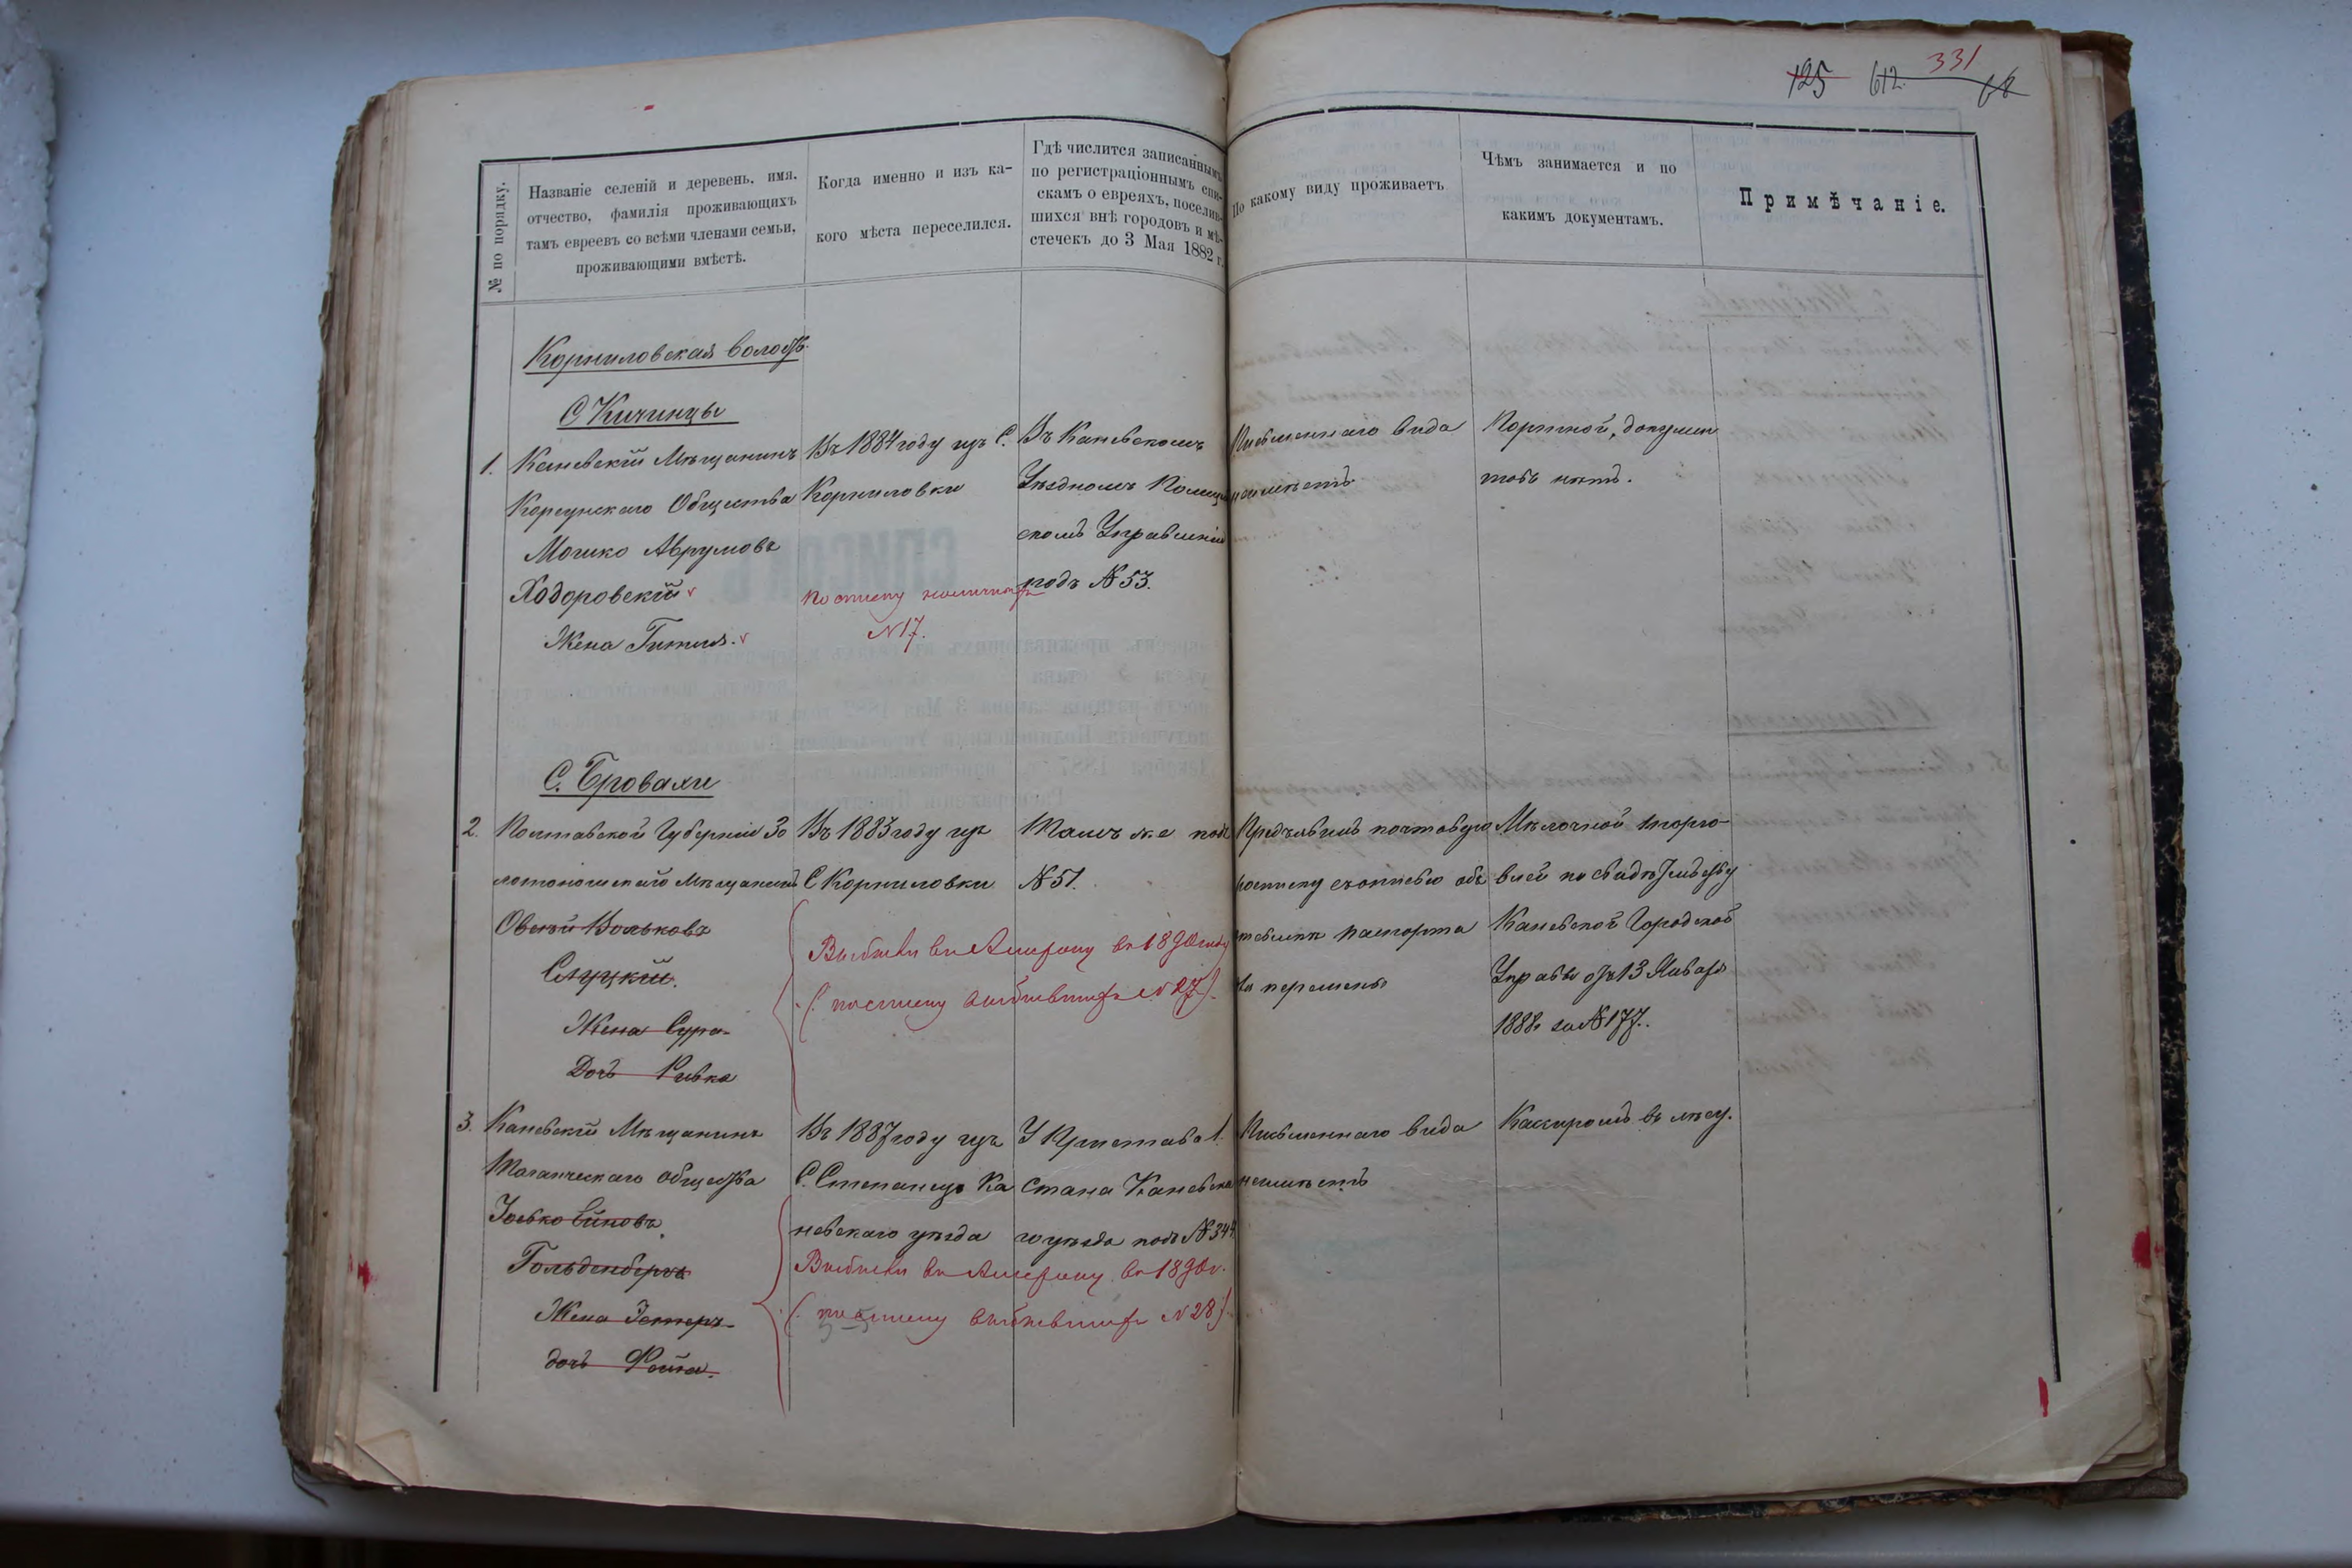 125 612. 331 68
№ по порядку.
Названіе селеній и деревень, имя,
отчество, фамилія проживающихъ
тамъ евреевъ со всѣми членами семьи,
проживающими вмѣстѣ.
Когда именно и изъ ка-
кого мѣста переселился.
Гдѣ числится записаннымъ
по регистраціоннымъ спи-
скамъ о евреяхъ, поселив-
шихся внѣ городовъ и мѣ-
стечекъ до 3 Мая 1882 г.
По какому виду проживаетъ
Чѣмъ занимается и по
какимъ документамъ.
Примѣчаніе.
Корниловская волость.
С Кичинцы
1.
Каневскій Мѣщанинъ
Корсунскаго Общества
Мошко Аврумовъ
Ходоровскій
Жена Гитля.
Въ 1884 году изъ С.
Корниловки
По списку наличныхъ
N 17.
Въ Каневскомъ
Уѣздномъ Полицей
скомъ Управленіи
подъ № 53.
Письменнаго вида
неимѣетъ
Портной, докумен
товъ нѣтъ.
С. Бровахи
2.
Полтавской Губерніи Зо
лотоношскаго Мѣщанинъ
Овсѣй Вольковъ
Слуцкій.
Жена Сура
Дочь Ривка
Въ 1883 году изъ
С Корниловки
Выбыли въ Америку въ 1890 году
(по списку выбывшихъ N 27)
Тамъ же подъ
№ 51.
Предъявилъ почтовую
росписку съ описью объ
отсылкѣ паспорта
на перемѣну
Мѣлочной торго-
влей по свидѣтельству
Каневской Городской
Управы отъ 13 Января
1888 г за № 177.
3.
Каневскій Мѣщанинъ
Таганческаго общества
Іосько
Гольденбергъ
Жена Эстеръ
дочь Фейга.
Въ 1887 году изъ
С. Степанецъ Ка
невскаго уѣзда
Выбыли въ Америку въ 1890 г.
(по списку выбывшихъ N 28)
У Пристава 1.
Стана Каневска
го уѣзда подъ № 344
Письменнаго вида
неимѣетъ
Кассиромъ въ лѣсу.